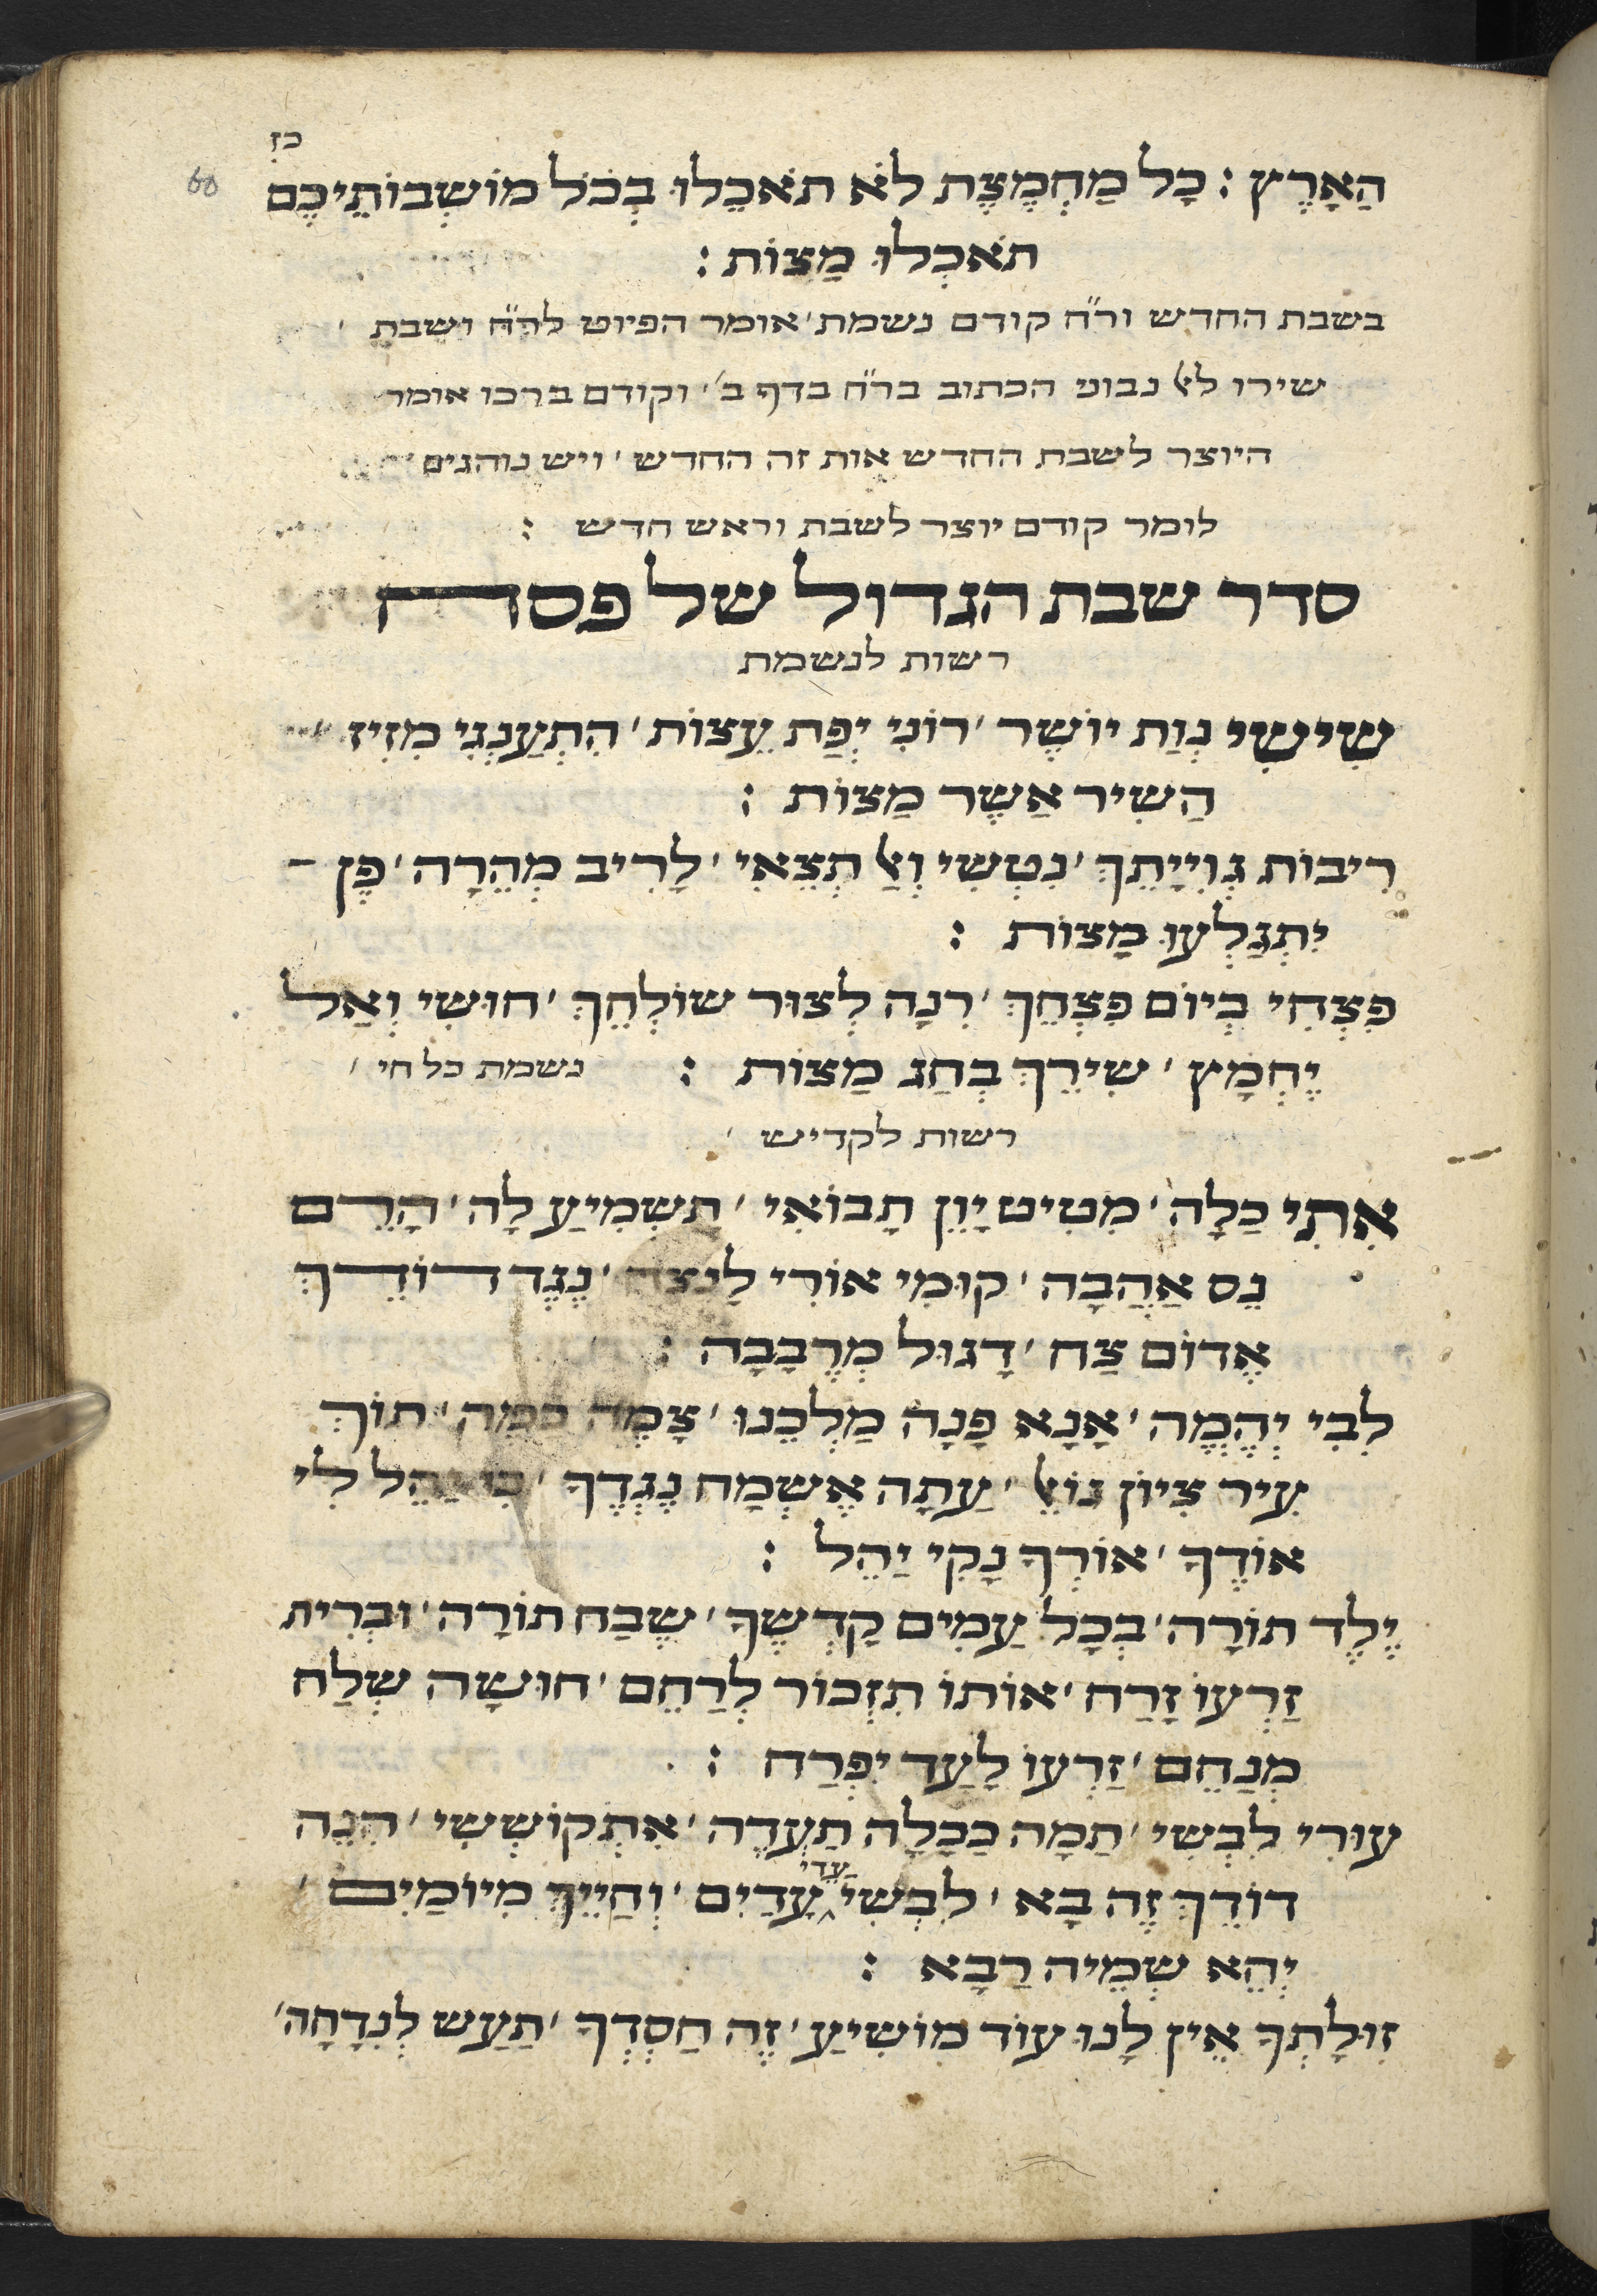 כז
60
הָאָרֶץ : כָּל מַחְמֶצֶת לֹא תֹאכֵלוּ בְּכֹל מוֹשְׁבוֹתֵיכֶם
תֹּאכְלוּ מַצּוֹת :
בשבת החדש ור״ח קודם נשמת׳ אומר הפיוט לר״ח ושבת
שירו לאל נבוני הכתוב בר״ח בדף ב׳ וקודם ברכו אומר
היוצר לשבת החדש אות זה החדש ׳ ויש נוהגים
לומר קודם יוצר לשבת וראש חדש :
סדר שבת הגדול של פסח
רשות לנשמת
שִׁישִׂי נְוַת יוֹשֶׁר ׳ רוֹנִי יְפַת עֵצוֹת ׳ הִתְעַנְּגִי מִזִּיז
הַשִּׁיר אֲשֶׁר מַצּוֹת :
רִיבוֹת גְּוִיָּיתֵךְ ׳ נִטְשִׁי וְאַל תְּצְאִי ׳ לָרִיב מְהֵרָה ׳ פֶּן -
יִתְגַּלְּעוּ מַצּוֹת :
פִּצְחִי בְּיוֹם פִּצְחֵךְ ׳ רִנָּה לְצוּר שׁוֹלְחֵךְ ׳ חוּשִׁי וְאַל
יֶחְמָץ ׳ שִׁירֵךְ בְּחַג מַצּוֹת : נשמת כל חי ׳
רשות לקדיש ׳
אִתִּי כַּלָּה ׳ מִטִּיט יָוֵן תָּבוֹאִי ׳ תַּשְׁמִיעַ לָהּ ׳ הָרֵים
נֵס אַהֲבָה ׳ קוּמִי אוֹרִי לָנֶצַח ׳ נֶגֶד דּוֹדֵךְ
אָדוֹם צַח ׳ דָּגוּל מְרְבָבָה :
לִבִּי יֶהֱמֶה ׳ אָנָּא פָּנָה מַלְכֵּנוּ ׳ צָמְאָה כָּמַהּ ׳ תּוֹךְ
עִיר צִיּוֹן גּוֹאֵל ׳ עַתָּה אֶשְׂמַח נֶגְדֶּךָ ׳ כִּי יַהֵל לִי
אוֹדֶךָּ ׳ אוֹרְךָ נָקִי יַהֵל :
יֶלֶד תּוֹרָה ׳ בְּכָל עַמִּים קָדְשֶׁךָ ׳ שֶׁבַח תּוֹרָה ׳ וּבְרִית
זַרְעוֹ זָרַח ׳ אוֹתוֹ תִּזְכּוֹר לְרַחֵם ׳ חוּשָׁה שְׁלַח
מְנַחֵם ׳ זַרְעוֹ לָעַד יִפְרַח :
עוּרִי לִבְשִׁי ׳ תַּמָּה כַּכַּלָּה תַּעְדֶּה ׳ אִתְקוֹשְׁשִׁי ׳ הִנֵּה
דּוֹדֵךְ זֶה בָּא ׳ לִבְשִׁי עֲדִי עֲדָיִים ׳ וְחַיֵּיךְ מִיּוֹמַיִם ׳
יְהֵא שְׁמֵיהּ רַבָּא :
זוּלָתְךָ אֵין לָנוּ עוֹד מוֹשִׁיעַ ׳ זֶה חַסְדְּךָ ׳ תַּעַשׂ לְנִדָּחָה ׳